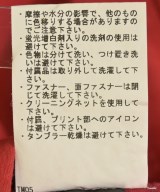 ・摩擦や水分の影響で、他のもの
に色移りする場合がありますの
でご注意下さい。
・蛍光増白剤入りの洗剤の使用は
避けて下さい。
・他色と分けて洗い、つけ置き洗
いは避けて下さい。
・付属品は取り外して洗濯して下
さい。
・ファスナー、面ファスナーは閉
じて洗濯して下さい。
・クリーニングネットを使用して
下さい。
・付属、プリント部へのアイロン
は避けて下さい。
・タンブラー乾燥は避けて下さい
。
TW05